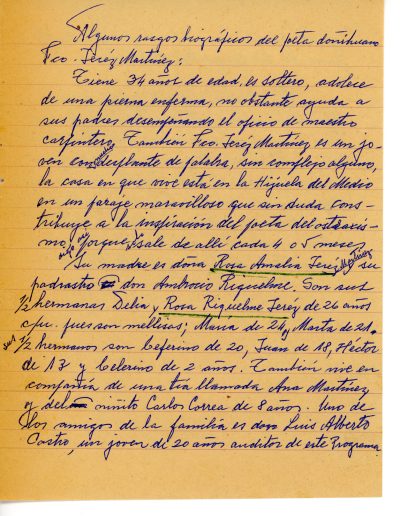 Algunos rasgos biográficos del poeta doñihuano
Fco. Jeréz Martínez:
Tiene 34 años de edad, es soltero, adolece
de una pierna enferma, no obstante ayuda a
sus padres desempeñando el oficio de maestro
carpintero. También Fco. Jeréz Martínez es un jo-
ven con desplante de palabra, sin complejo alguno,
la casa en que vive está en la Hijuela del Medio
en un paraje maravilloso que sin duda cons-
tribuye a la inspiración del poeta del ostracis-
mo, porque sale de allí cada 4 o 5 meses
Su madre es doña Rosa Amalia Jeréz Martínez su
padrastro don Ambrosio Riquelme. Son sus
1/2 hermanas Delia y Rosa Riquelme Jeréz de 26 años
c/u. pues son mellisas; María de 24 y Marta de 21.
sus 1/2 hermanos son Ceferino de 20, Juan de 18, Héctor
de 13 y Celerino de 2 años. También vive en
compañía de una tía llamada Ana Martínez
y del niñito Carlos Correa de 8 años. Uno de
los amigos de la familia es don Luis Alberto
Castro, un joven de 20 años auditor de este Programa